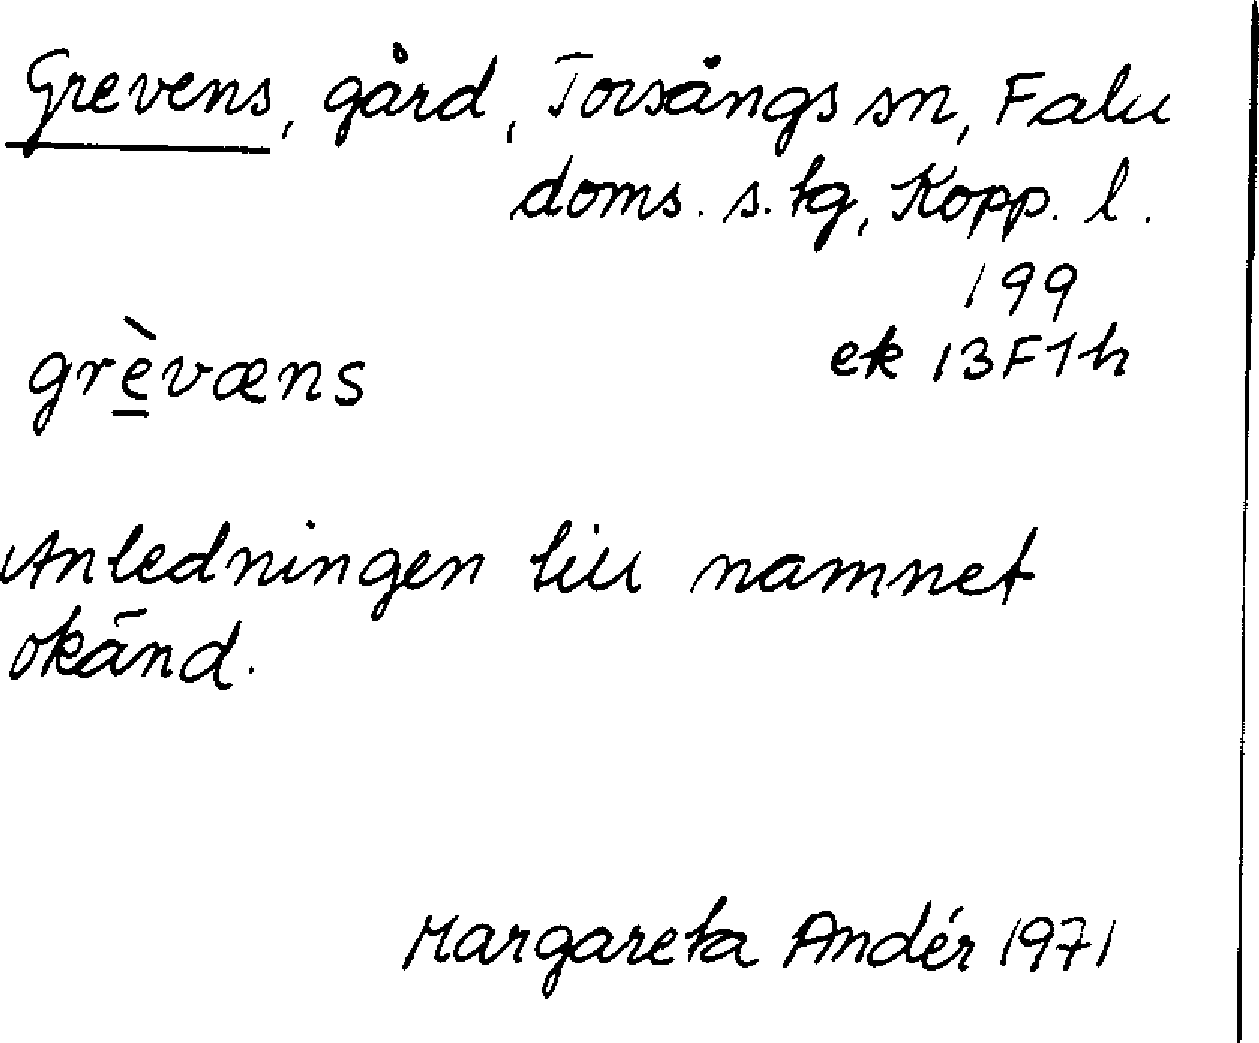 Grevens, gård, Torsångs sn, Falu
doms. s. tg, Kopp. l.
199
ek 13F1h
grè̲væns
Anledningen till namnet
okänd.
Margareta Andér 1971